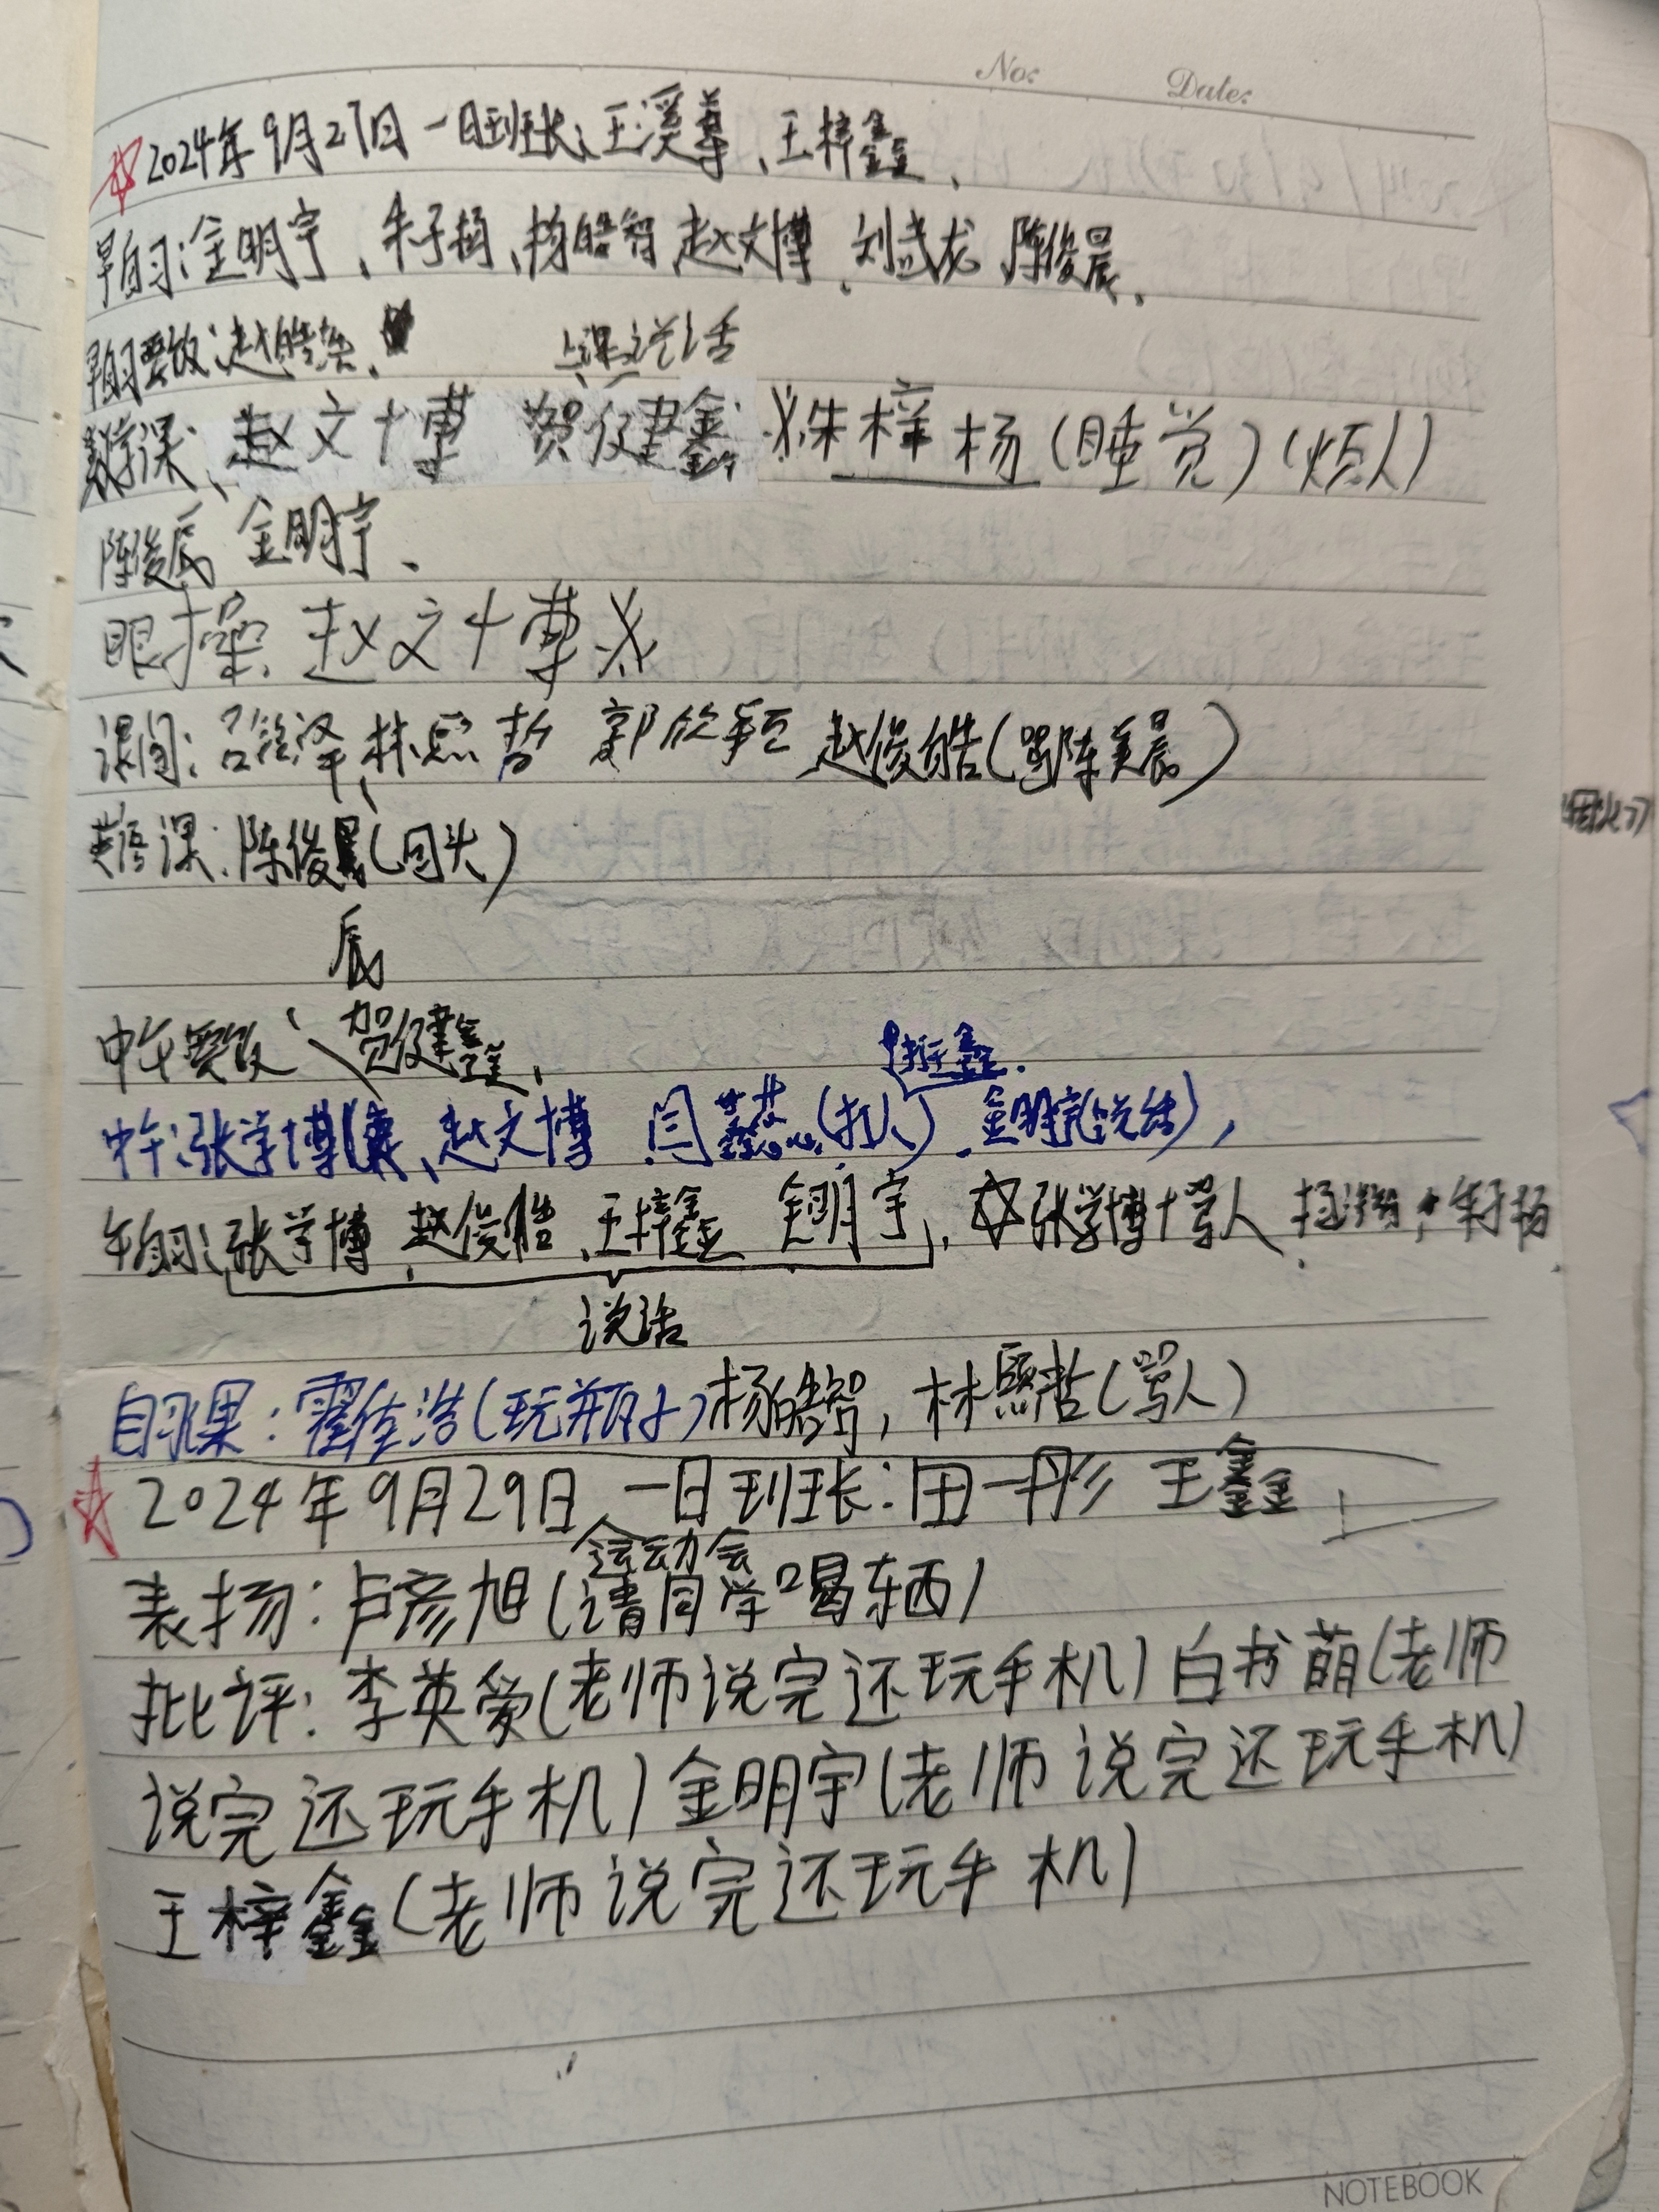 No: Date:
☆2024年9月27日一日班长:王溪尊、王梓鑫、
早自习:金明宇、朱子扬、杨皓智 赵文博、刘武龙 陈俊晨、
早自习要改:赵皓
上课说话
数学课:赵文博 贺健鑫 朱梓杨(睡觉)(烦人)
陈俊辰 金明宇、
眼操:赵文博
课间: 泽 林熙哲 郭欣 赵俊皓(骂陈美晨)
英语课:陈俊(回头)
辰
中午要改:贺健鑫、
中午:张学博、赵文博 闫蕊(打人)金明宇(说话),
午自习:张学博、赵俊皓、王梓鑫 金明宇,☆张学博骂人 朱子扬
说话
自习课:霍佳浩(玩瓶子)杨皓智,林熙哲(骂人)
☆2024年9月29日、一日班长:田一彤 王鑫
运动会
表扬:卢彦旭(请同学喝东西)
批评:李英爱(老师说完还玩手机)白书萌(老师
说完还玩手机)金明宇(老师说完还玩手机)
王梓鑫(老师说完还玩手机)
NOTEBOOK